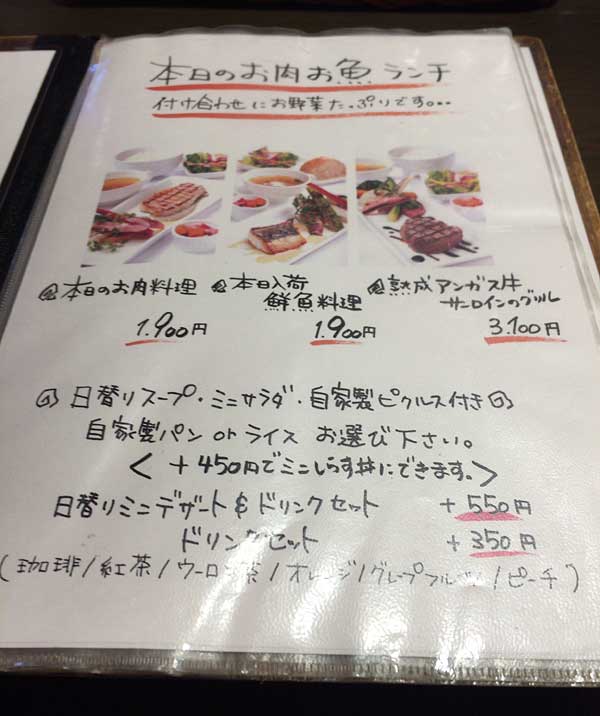 本日のお肉お魚ランチ
付け合わせにお野菜たっぷりです。。。
本日のお肉料理
1.900円
本日入荷
鮮魚料理
1.900円
熟成アンガス牛
サーロインのグリル
3.100円
日替りスープ・ミニサラダ・自家製ピクルス付き
自家製パン or ライス お選び下さい。
< +450円でミニしらす丼にできます。>
日替りミニデザート & ドリンクセット +550円
ドリンクセット +350円
(珈琲/紅茶/ウーロン茶/オレンジ/グレープフルーツ/ピーチ)